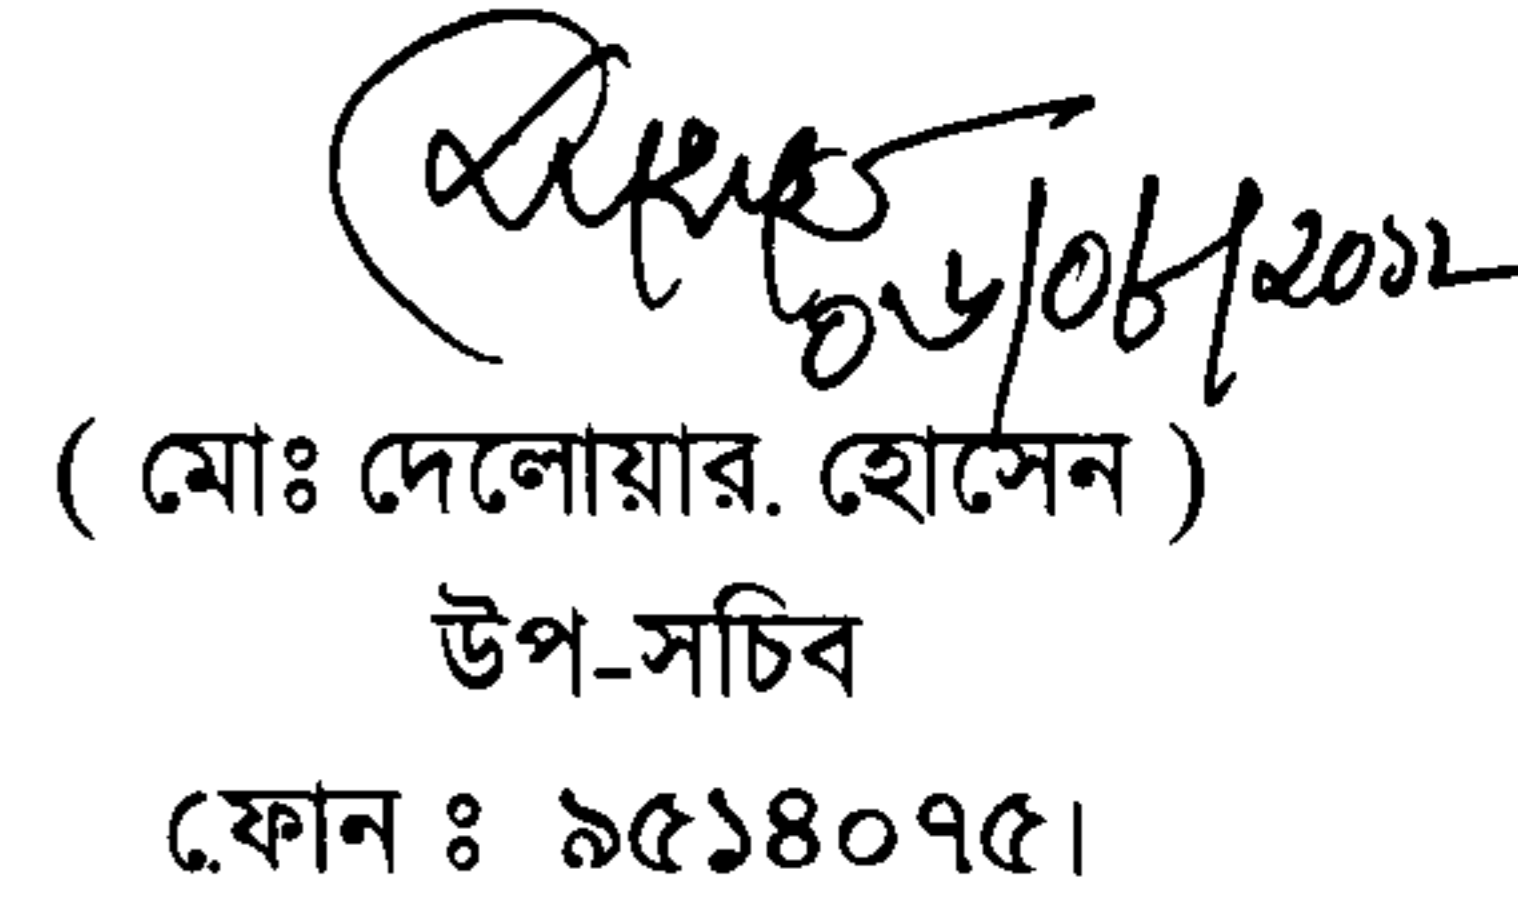 ০৬/০৮/২০১২
( মোঃ দেলোয়ার. হোসেন )
উপ-সচিব
ফোন ঃ ৯৫১৪০৭৫।